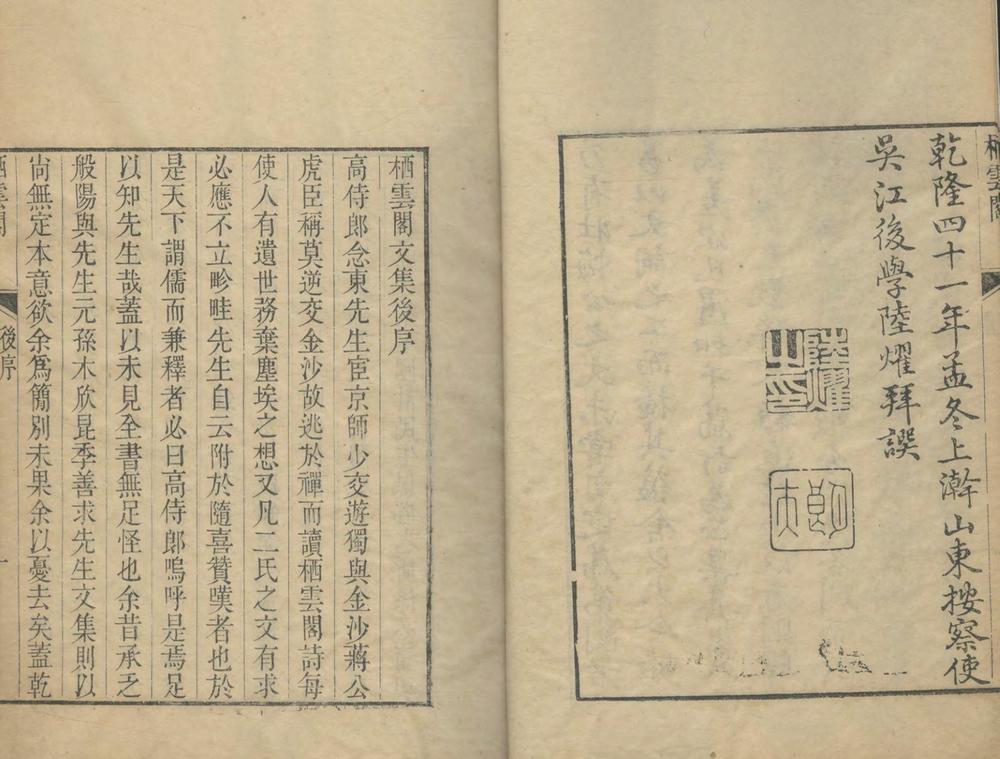 栖雲閣
乾隆四十一年孟冬上澣山東按察使
吳江後學陸燿拜譔
陸燿之印
朗夫
栖雲閣文集後序
高侍郎念東先生宦京師少交遊獨與金沙蔣公
虎臣稱莫逆交金沙故逃於禪而讀栖雲閣詩每
使人有遺世務棄塵埃之想又凡二氏之文有求
必應不立畛畦先生自云附於隨喜贊嘆者也於
是天下謂儒而兼釋者必曰高侍郎嗚呼是焉足
以知先生哉蓋以未見全書無足怪也余昔承乏
般陽與先生元孫木欣昆季善求先生文集則以
尙無定本意欲余爲簡別未果余以憂去矣蓋乾
栖雲閣
後序
一